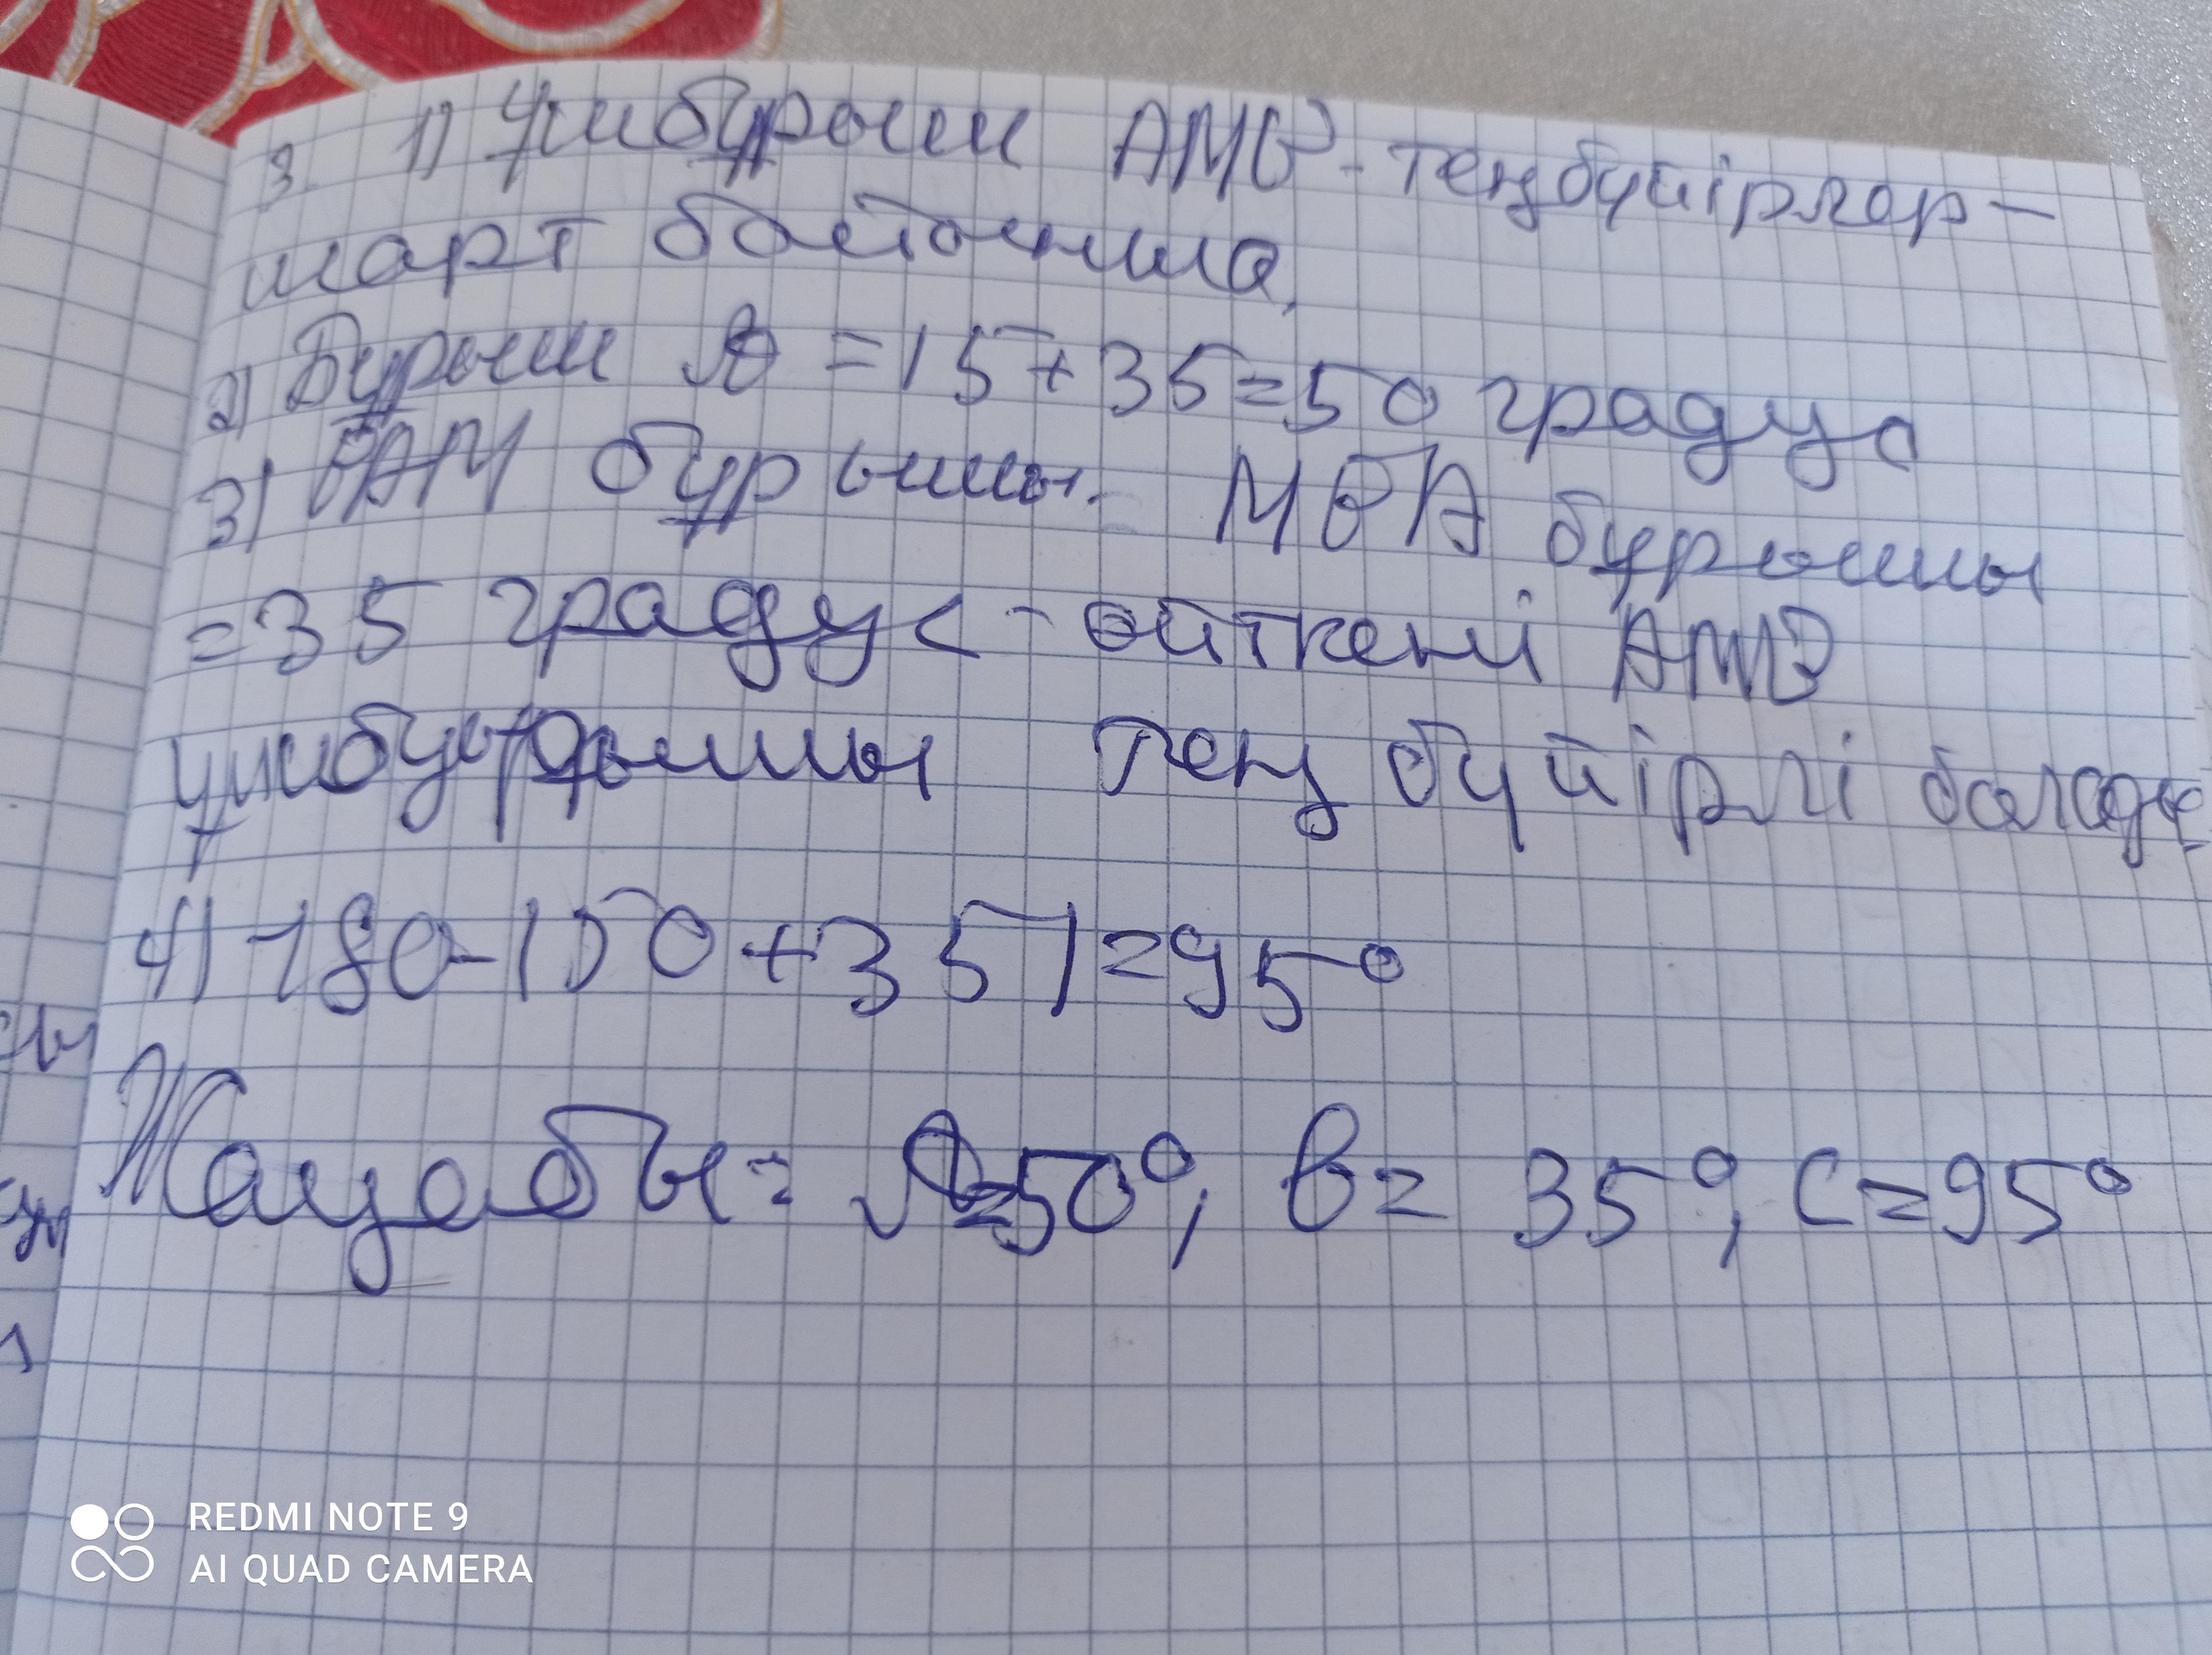 3. 1) Үшбұрыш АМВ - теңбүйірлер -
шарт бойынша,
2) Бұрыш А = 15 + 35 = 50 градус
3) ВАМ бұрышы - МВА бұрышы
= 35 градус - өйткені АМВ
үшбұрышы тең бүйірлі болады
4) 180 - (50 + 35) = 95°
Жауабы = А = 50°; В = 35°; С = 95°
REDMI NOTE 9
AI QUAD CAMERA